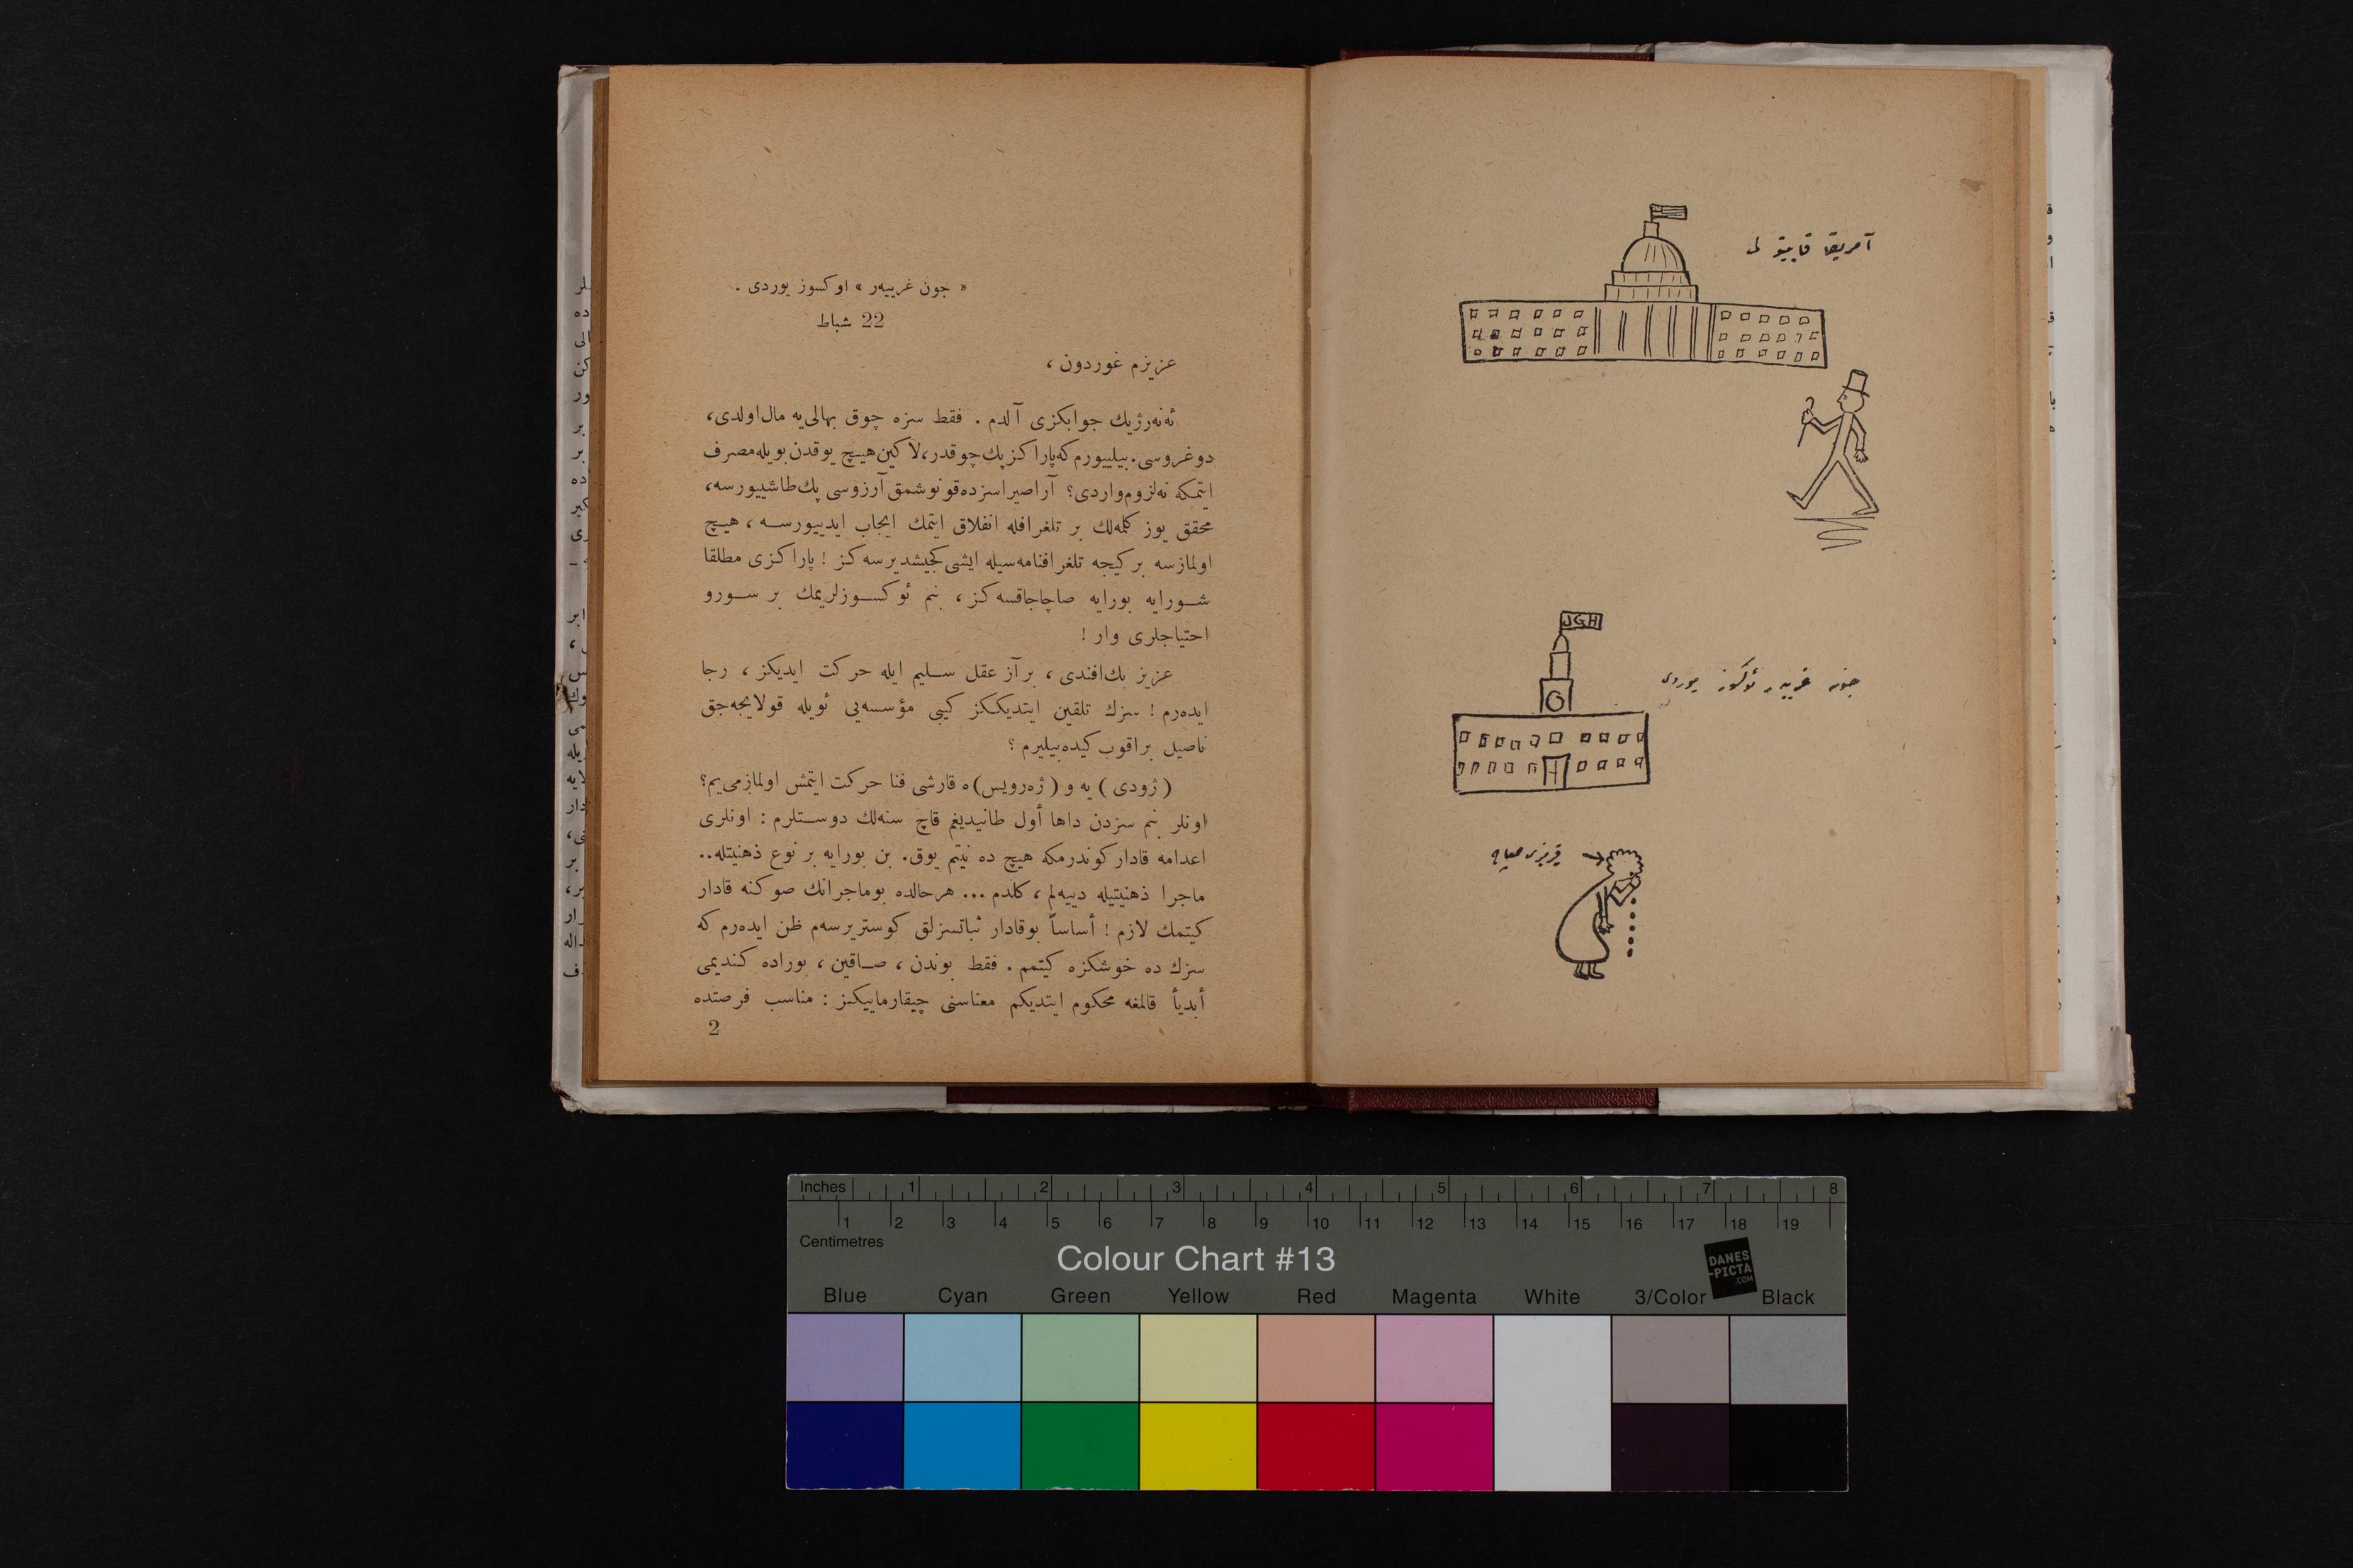 آمریقا قاپیتولی
JGH
جون غرییه‌ر ئوکسوز یوردی
« جون غرییه‌ر » اوکسوز یوردی .
22 شباط
عزیزم غوردون ،
ئه‌نه‌رژیك جوابکزی آلدم . فقط سزه چوق بهالی‌یه مال‌اولدی،
دوغروسی. بیلییورم که پاراکز پك چوقدر، لاکین هیچ یوقدن بویله مصرف
ایتمکه نه لزوم واردی؟ آراصیرا سزده قونوشمق آرزوسی پك طاشییورسه،
محقق یوز کله‌لك بر تلغرافله انفلاق ایتمك ایجاب ایدییورسه ، هیچ
اولمازسه بر کیجه تلغرافنامه‌سیله ایشی کچیشدیرسه‌کز ! پاراکزی مطلقا
شورایه بورایه صاچاجاقسه‌کز ، بنم ئوکسوزلریمك بر سورو
احتیاجلری وار !
عزیز بك‌افندی ، بر آز عقل سلیم ایله حرکت ایدیکز ، رجا
ایده‌رم ! سزك تلقین ایتدیککز کیبی مؤسسه‌یی ئویله قولایجه‌جق
ناصیل براقوب کیده‌بیلیرم ؟
( ژودی ) یه و ( ژه‌رویس ) ه قارشی فنا حرکت ایتمش اولمازمی‌یم؟
اونلر بنم سزدن داها أول طانیدیغم قاچ سنه‌لك دوستلرم : اونلری
اعدامه قادار کوندرمکه هیچ ده نیتم یوق. بن بورایه بر نوع ذهنیتله..
ماجرا ذهنیتیله دییه‌لم ، کلدم ... هرحالده بوماجرانك صوکنه قادار
کیتمك لازم ! أساساً بوقادار ثباتسزلق کوستریرسه‌م ظن ایده‌رم که
سزك ده خوشکزه کیتمم . فقط بوندن ، صاقین ، بوراده کندیمی
أبدیاً قالمغه محکوم ایتدیکم معناسنی چیقارماییکز : مناسب فرصتده
2
Inches 1 2 3 4 5 6 7 8
1 2 3 4 5 6 7 8 9 10 11 12 13 14 15 16 17 18 19
Centimetres
Colour Chart #13
DANES
-PICTA
.COM
Blue Cyan Green Yellow Red Magenta White 3/Color Black